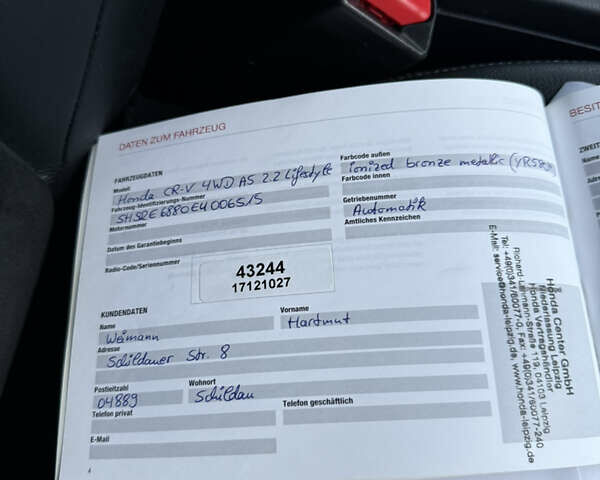 DATEN ZUM FAHRZEUG
BESIT
FAHRZEUGDATEN
Modell
Honda CR-V 4WD AS 2.2 Lifestyle
Fahrzeug-Identifizierungs-Nummer
SHSRE6880E4006515
Motornummer
Datum des Garantiebeginns
Radio-Code/Seriennummer
43244
17121027
Farbcode außen
ionized bronze metallic
Farbcode innen
Getriebenummer
Automatik
Amtliches Kennzeichen
KUNDENDATEN
Name
Weimann
Vorname
Hartmut
Adresse
Schildauer Str. 8
Postleitzahl
04889
Wohnort
Schildau
Telefon privat
Telefon geschäftlich
E-Mail
4
Honda Center GmbH
Niederlassung Leipzig
Honda Vertragshändler
Richard-Lehmann-Straße 119, 04103 Leipzig
Tel: +49(0)341/60077-0, Fax: +49(0)341/60077-240
E-Mail: service@honda-leipzig.de, www.honda-leipzig.de